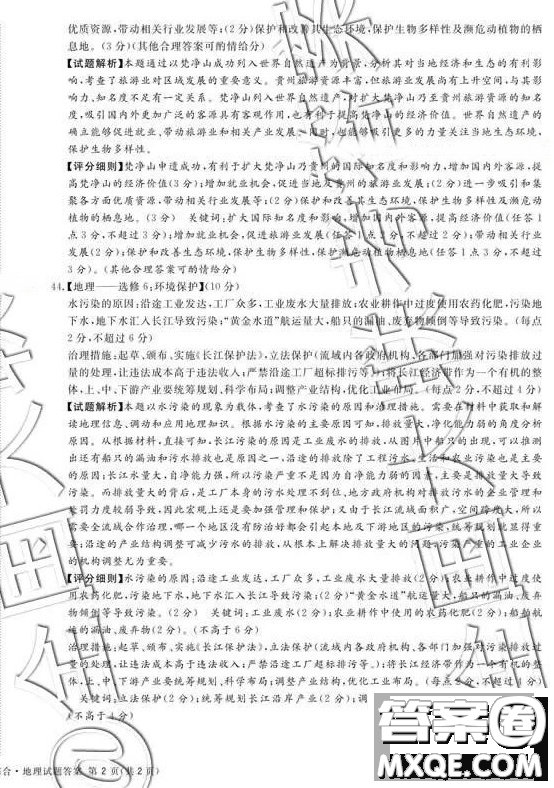 优质资源,带动相关行业发展等;(2分)保护和改善其生态环境,保护生物多样性及濒危动植物的栖
息地。(3分)(其他合理答案可酌情给分)
【试题解析】本题通过以梵净山成功列入世界自然遗产为背景,分析其对当地经济和生态的有利影
响,考查了旅游业对区域发展的重要意义。贵州旅游资源丰富,但旅游业发展尚有上升空间,与其影
响力、知名度不足有一定关系。梵净山列入世界自然遗产,对扩大梵净山乃至贵州旅游资源的知名
度,吸引国内外更加广泛的客源具有客观作用,也有利于提高梵净山的经济价值。世界自然遗产的
确立能够促进就业,带动旅游业和相关产业发展,同时,也能够吸引更多的力量关注当地生态环境,
保护生物多样性。
【评分细则】梵净山申遗成功,有利于扩大梵净山乃至贵州的国际知名度和影响力,增加国内外客源,提
高梵净山的经济价值(3分);增加就业机会,促进当地及贵州的旅游业发展;(2分)进一步吸引和集
聚各方面优质资源,带动相关行业发展等;(2分)保护和改善其生态环境,保护生物多样性及濒危动
植物的栖息地。(3分) 关键词:扩大国际知名度和影响,增加国内外客源,提高经济价值(任答1
点3分,不超过3分);增加就业机会,促进旅游业发展(任答1点2分,不超过2分);带动相关行业
发展(2分);保护和改善生态环境,保护生物多样性,保护濒危动植物栖息地(任答1点3分,不超过3
分)。(其他合理答案可酌情给分)
44.【地理——选修6:环境保护】(10分)
水污染的原因:沿途工业发达,工厂众多,工业废水大量排放;农业耕作中过度使用农药化肥,污染地
下水,地下水汇入长江导致污染;“黄金水道”航运量大,船只的漏油、废弃物倾倒等导致污染。(每点
2分,不超过6分)
治理措施:起草、颁布、实施《长江保护法》,立法保护(流域内各政府机构、各部门加强对污染排放过
量的处理,让违法成本高于违法收入;严禁沿途工厂超标排污等);将长江经济带作为一个有机的整
体,上、中、下游产业要统筹规划,科学布局;调整产业结构,优化工业布局。(每点2分,不超过4分)
【试题解析】本题以水污染的现象为载体,考查了水污染的原因和治理措施。需要在材料中获取和解
读地理信息、调动和应用地理知识。水污染的主要原因可知,排放量大,净化能力弱的角度分析
原因。从根据材料,直接可知,长江污染的原因是工业废水的排放,从图片中船只的出现,可以推测
出还有船只的漏油和污水排放也是原因之一,沿途的排放除了工程污水,生活和农业污染也是主要
的原因;长江水量大,自净能力强,所以污染严重不是因为自净能力弱的因素,主要是排放量大导致
污染。而排放量大的背后,是工厂本身的污水处理不到位,地方政府机构对排放污水的企业管理和
惩罚力度较弱导致,因此宏观上还是要加强管理和保护;又由于长江流域面积广,空间跨度大,所以
需要全流域合作治理,哪一个地区没有防治好都会引起本地及下游地区的污染,统筹规划就显得重
要;沿途的产业结构调整可减少污水的排放,从根本上解决排放量大的问题,污染严重的工业企业
的机构调整尤为重要。
【评分细则】水污染的原因:沿途工业发达,工厂众多,工业废水大量排放(2分);农业耕作中过度使
用农药化肥,污染地下水,地下水汇入长江导致污染;(2分)“黄金水道”航运量大,船只的漏油、废弃
物倾倒等导致污染。(2分) 关键词:工业废水(2分);农业耕作中使用的农药化肥(2分);船舶航
施的漏油、废弃物(2分)。(不高于6分)
治理措施:起草、颁布、实施《长江保护法》,立法保护(流域内各政府机构、各部门加强对污染排放过
量的处理,让违法成本高于违法收入;严禁沿途工厂超标排污等)。;将长江经济带作为一个有机的整
体,上、中、下游产业要统筹规划,科学布局;调整产业结构,优化工业布局。(每点2分,不超过4分)
关键词:立法保护(2分);统筹规划长江沿岸产业(2分);调
(不高于4分)
合·地理试题答案 第2页(共2页)
答案圈
MXQE.COM